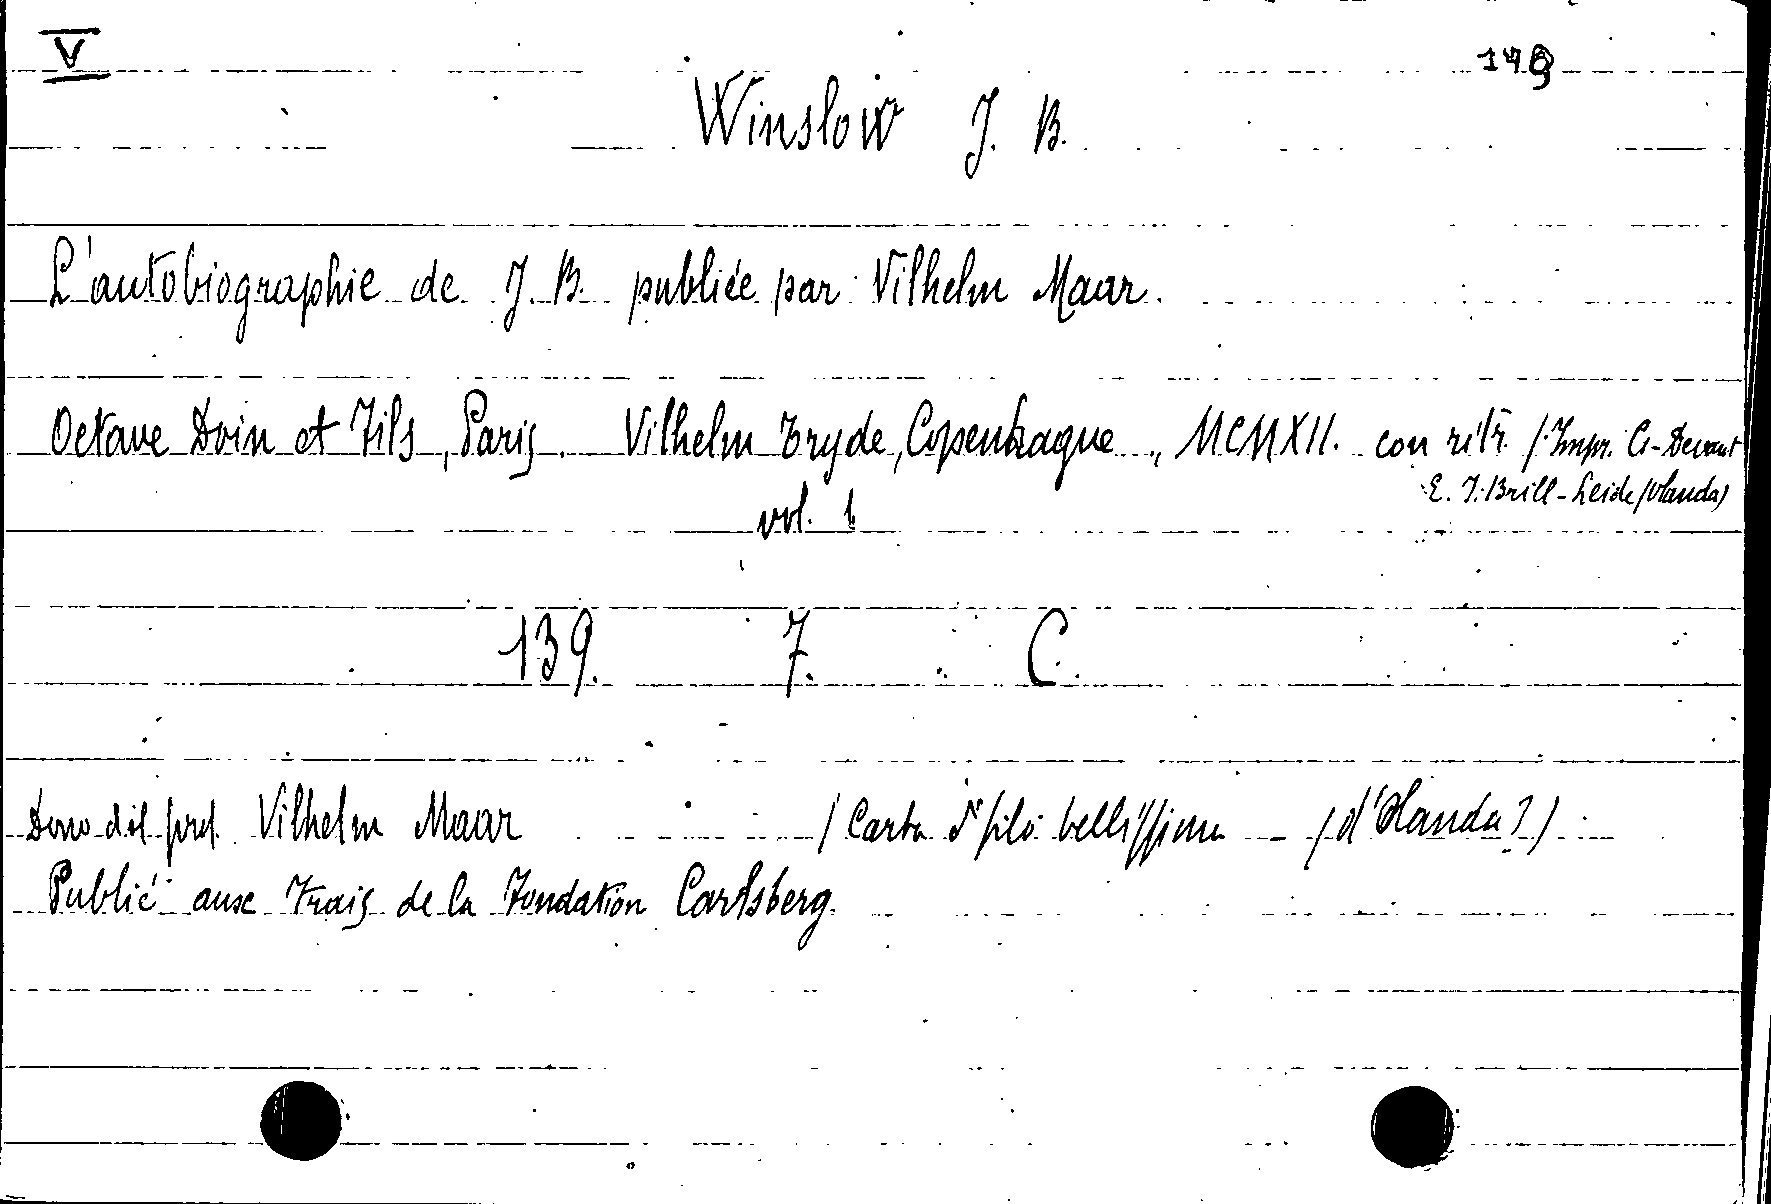 V
Winslow J. B.
L'autobiographie de J. B. publiée par Vilhelm Maar.
Octave Doin et Fils, Paris. Vilhelm Tryde, Copenhague, MCMXII. con ritr. (Impr. Ci-Devant
E. J. Brill - Leide (Olanda)
vol. 1
139. 7. C.
Dono del prof. Vilhelm Maar (Carta a filo bellissima - (d'Olanda?)
Publié aux Frais de la Fondation Carlsberg.